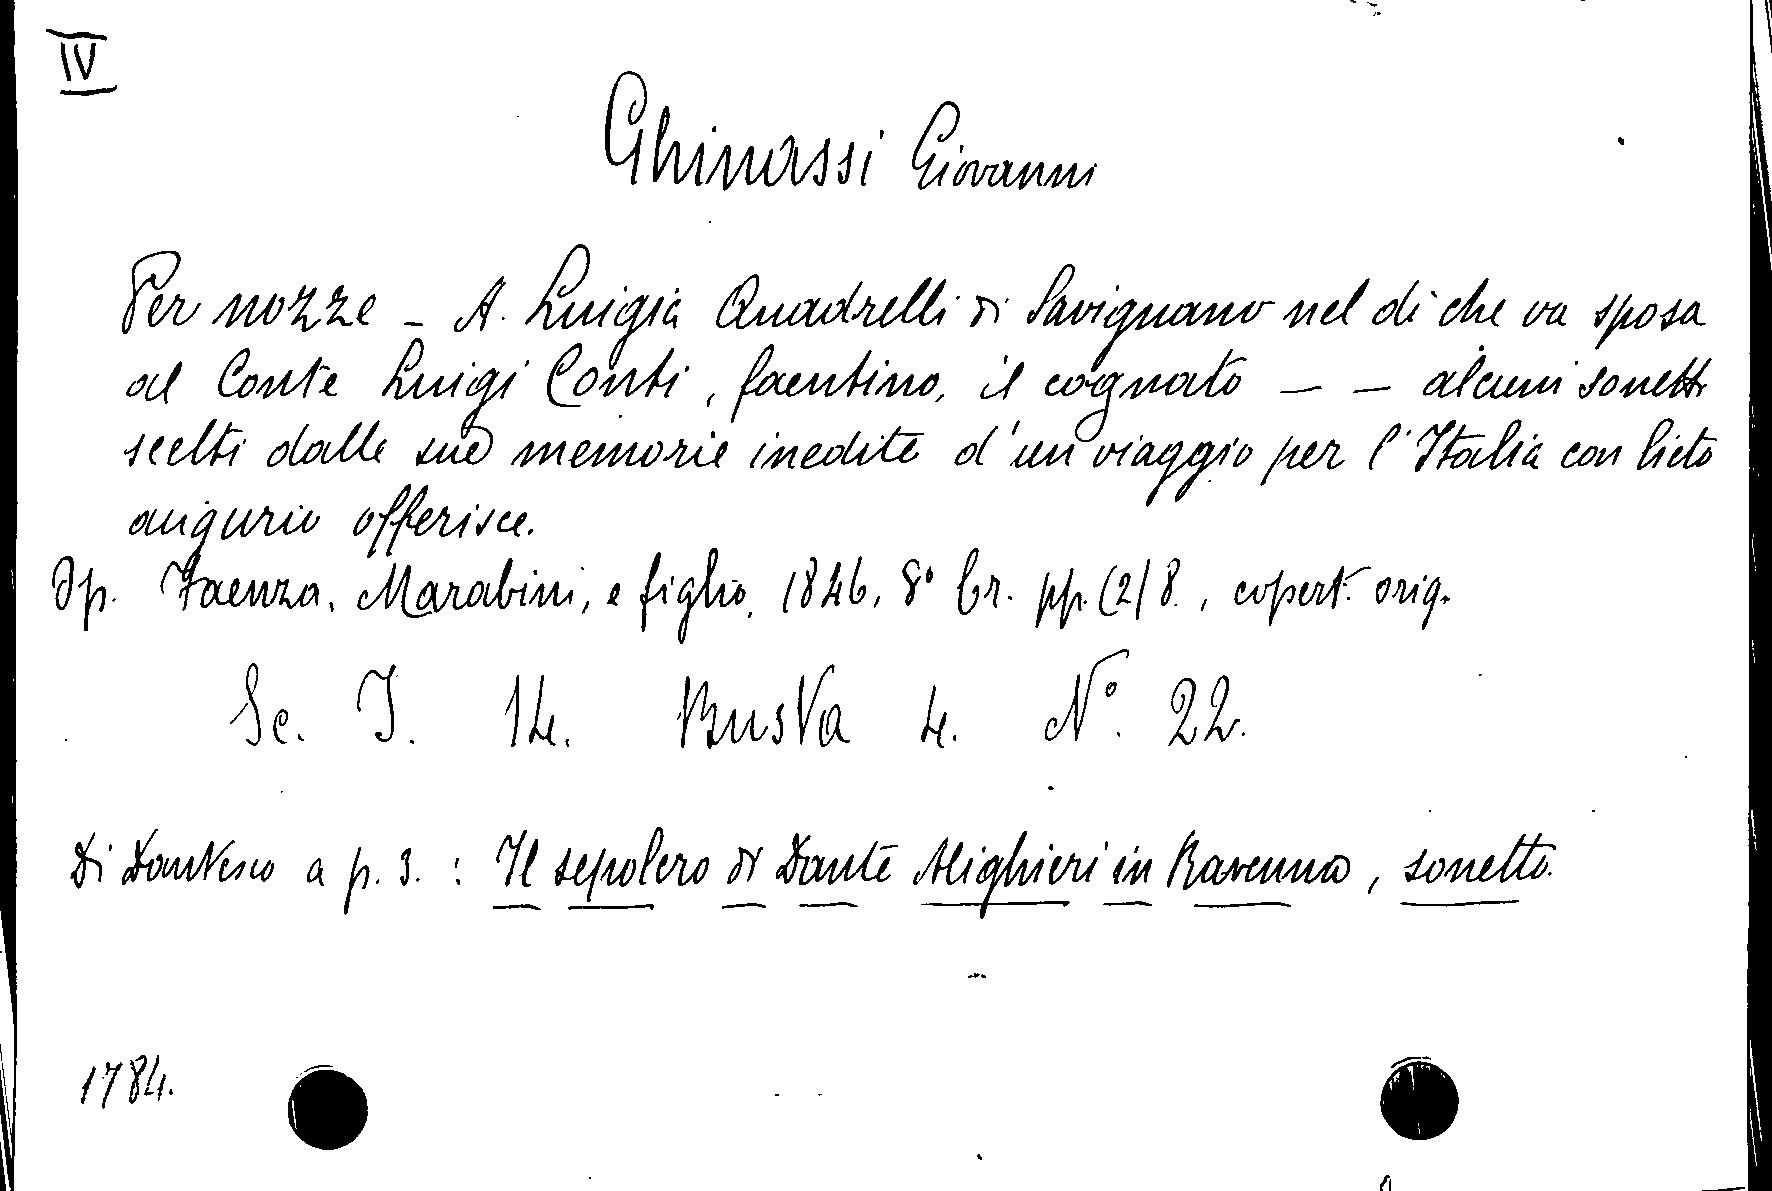 IV
Ghinassi Giovanni
Per nozze - A. Luigia Quadrelli di Savignano nel dì che va sposa
al Conte Luigi Conti, faentino, il cognato — — alcuni sonetti
scelti dalle sue memorie inedite d'un viaggio per l'Italia con lieto
augurio offerisce.
Op. Faenza, Marabini, e figlio, 1846, 8° br. pp. (2) 8., copert. orig.
Sc. I. 14. Busta 4. N° 22.
Di Dantesco a p. 3. : Il sepolcro di Dante Alighieri in Ravenna, sonetto.
1784.